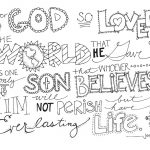 GOD so LOVED
THE WORLD THAT HE Gave
HIS ONE
only SON THAT WHOEVER BELIEVES
IN HIM will NOT PERISH but have
everlasting Life.